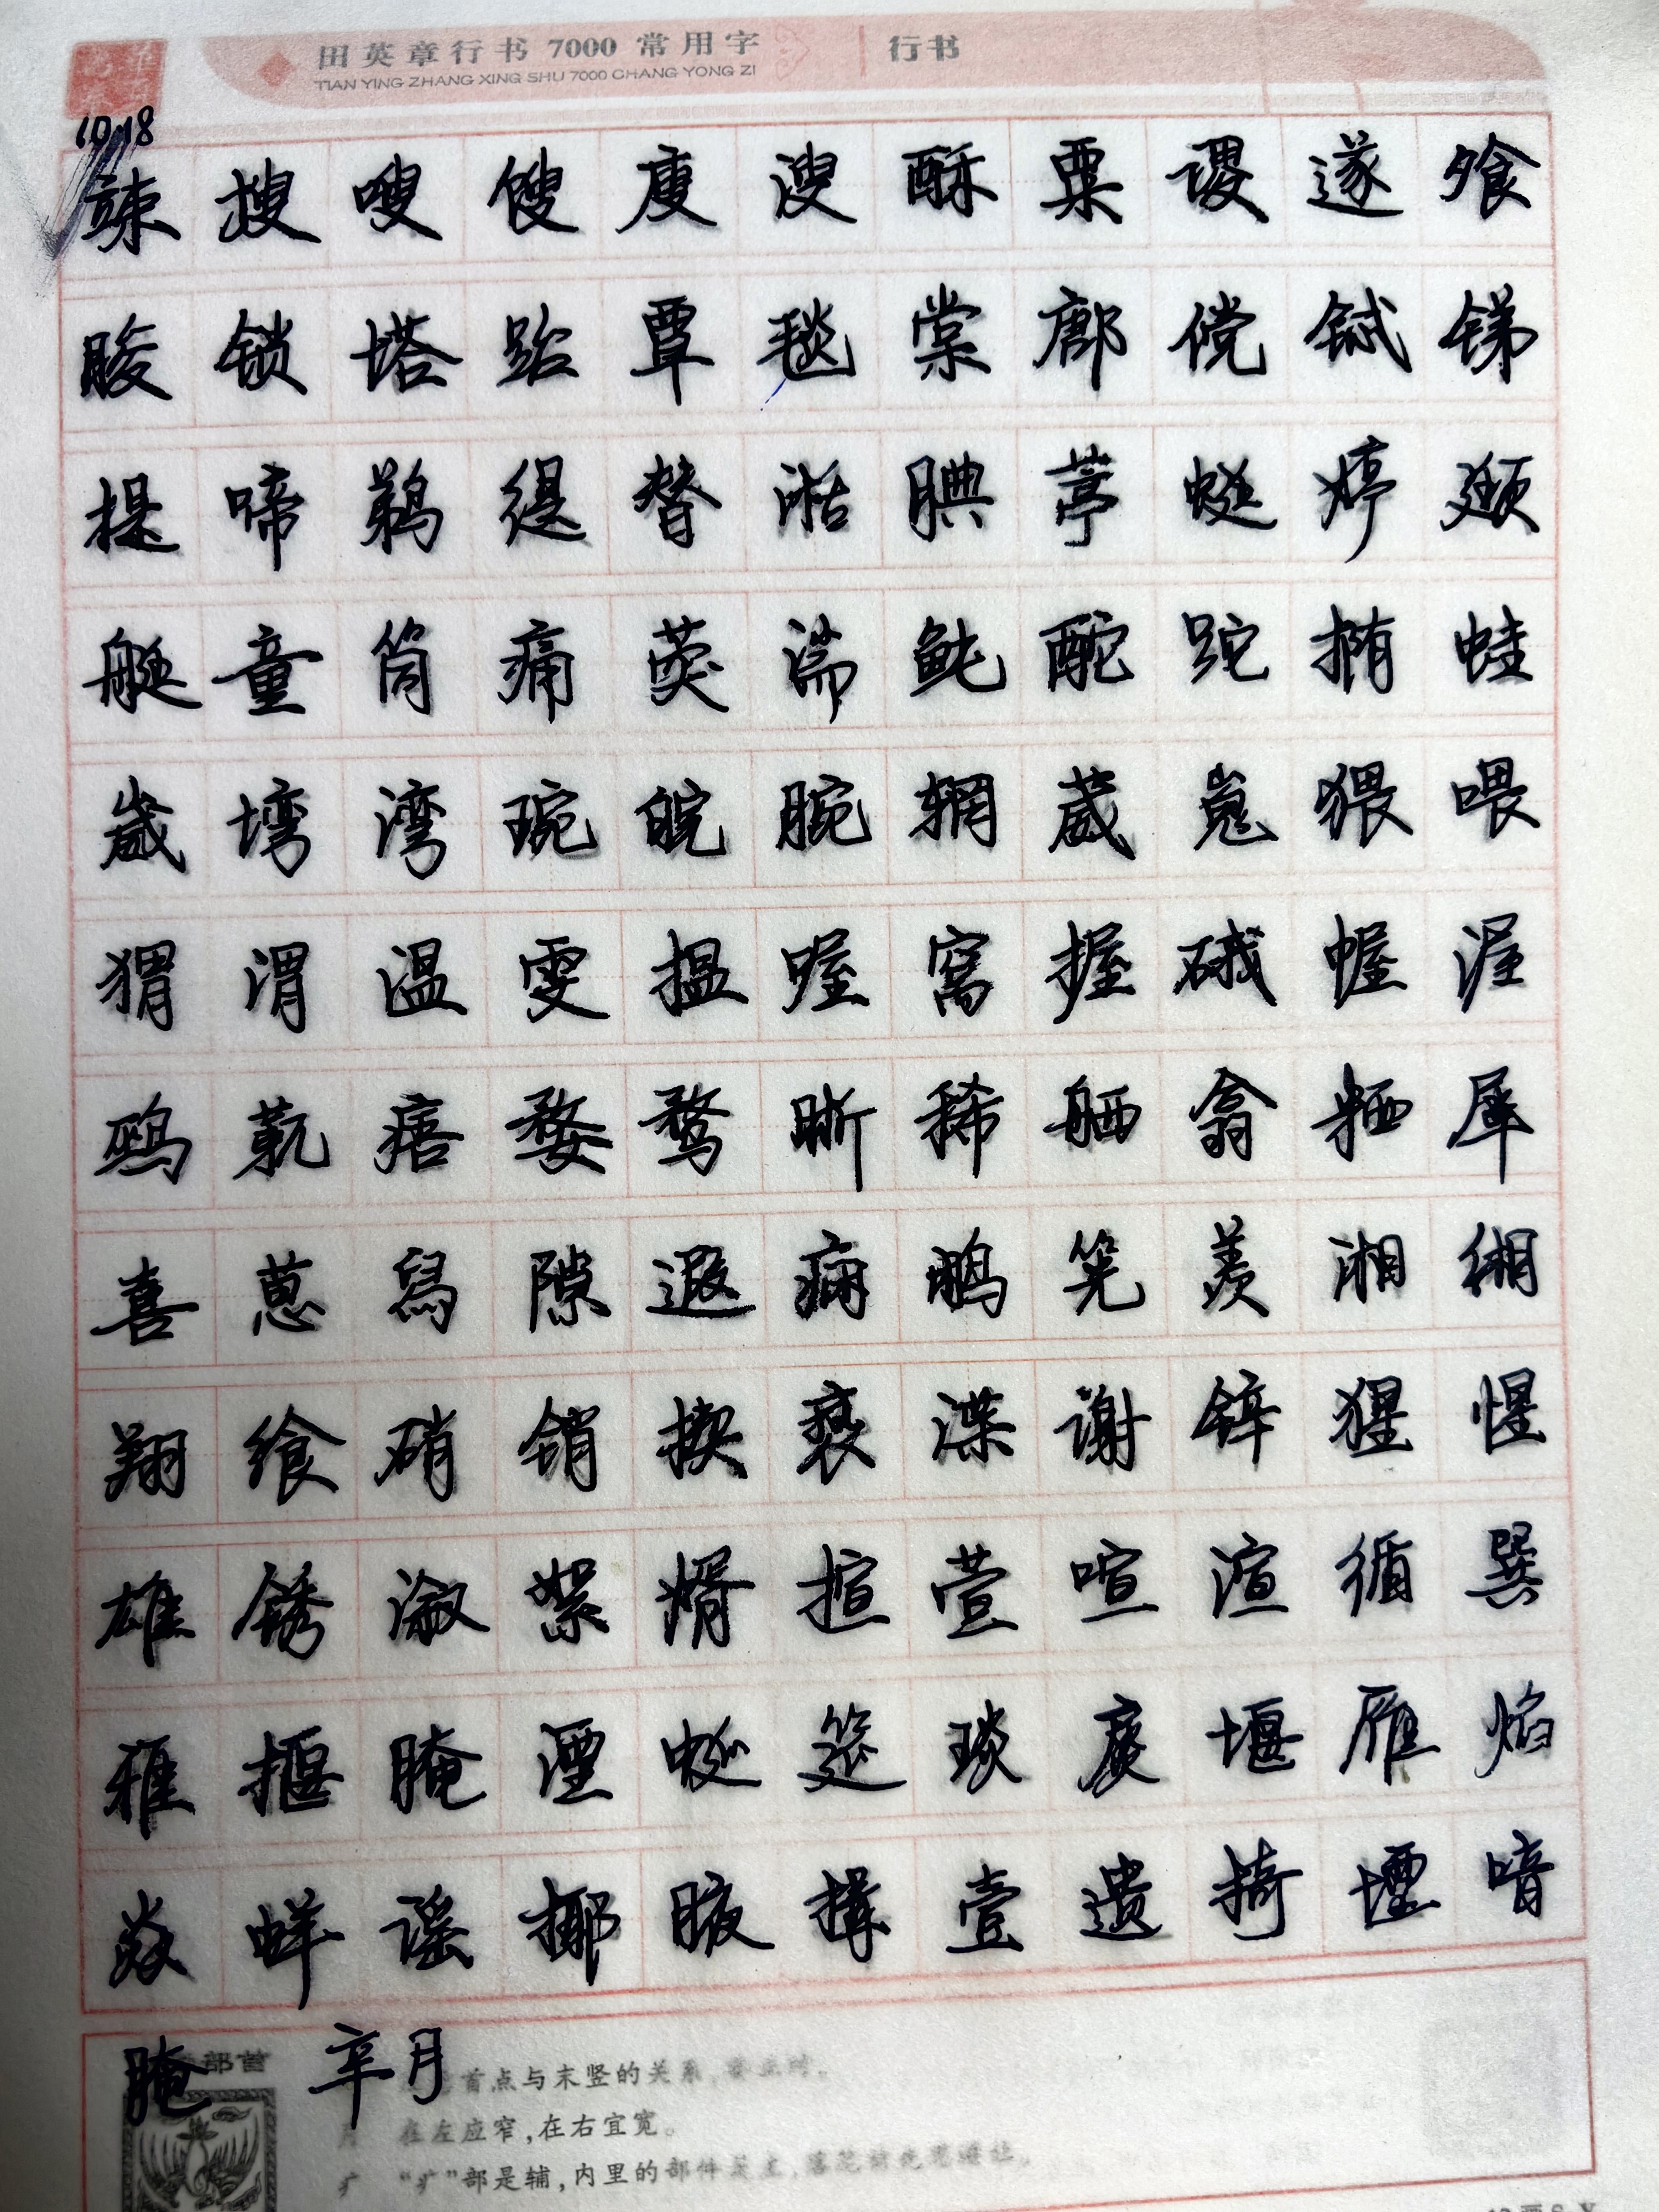 田英章行书 7000 常用字 行书
TIAN YING ZHANG XING SHU 7000 CHANG YONG ZI
10.18
竦 搜 嗖 馊 廋 溲 酥 粟 谡 遂 飧
朘 锁 塔 跆 覃 毯 棠 鄌 傥 铽 锑
提 啼 鹈 缇 替 湉 腆 葶 蜓 婷 颋
艇 童 筒 痛 葖 湍 鲀 酡 跎 椭 蛙
崴 塆 湾 琬 皖 腕 辋 葳 嵬 猥 喂
猬 渭 温 雯 揾 喔 窝 握 硪 幄 渥
鹀 靰 痦 婺 骛 晰 稀 舾 翕 粞 犀
喜 葸 舄 隙 遐 痫 鹇 筅 羡 湘 缃
翔 飨 硝 销 揳 亵 渫 谢 锌 猩 惺
雄 锈 溆 絮 婿 揎 萱 喧 渲 循 巽
雅 揠 腌 湮 蜒 筵 琰 扊 堰 雁 焰
焱 蛘 谣 揶 腋 揲 壹 遗 掎 堙 喑
腌 部首 辛 月
首点与末竖的关系,要立时。
月 在左应窄,在右宜宽。
疒 “疒”部是辅,内里的部件是主,